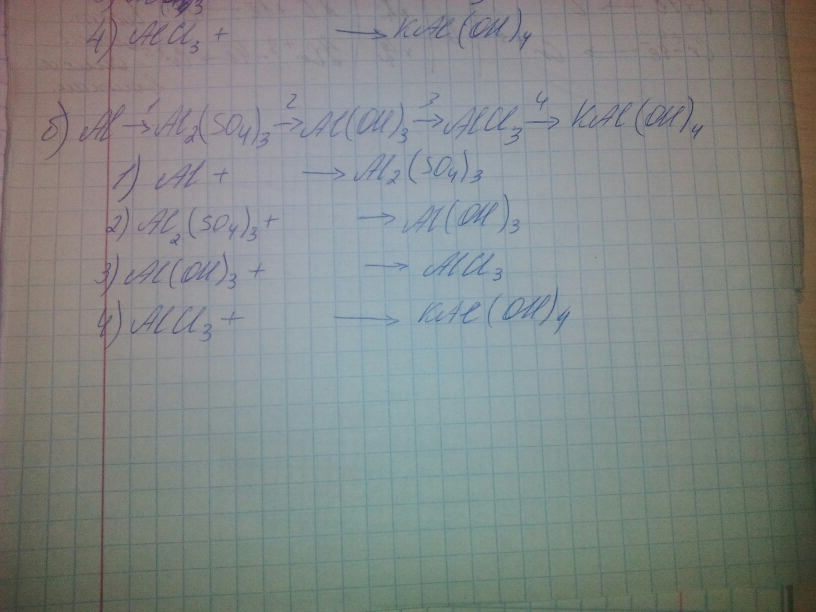 4) AlCl3 + → KAl(OH)4
б) Al 1→ Al2(SO4)3 2→ Al(OH)3 3→ AlCl3 4→ KAl(OH)4
1) Al + → Al2(SO4)3
2) Al2(SO4)3 + → Al(OH)3
3) Al(OH)3 + → AlCl3
4) AlCl3 + → KAl(OH)4